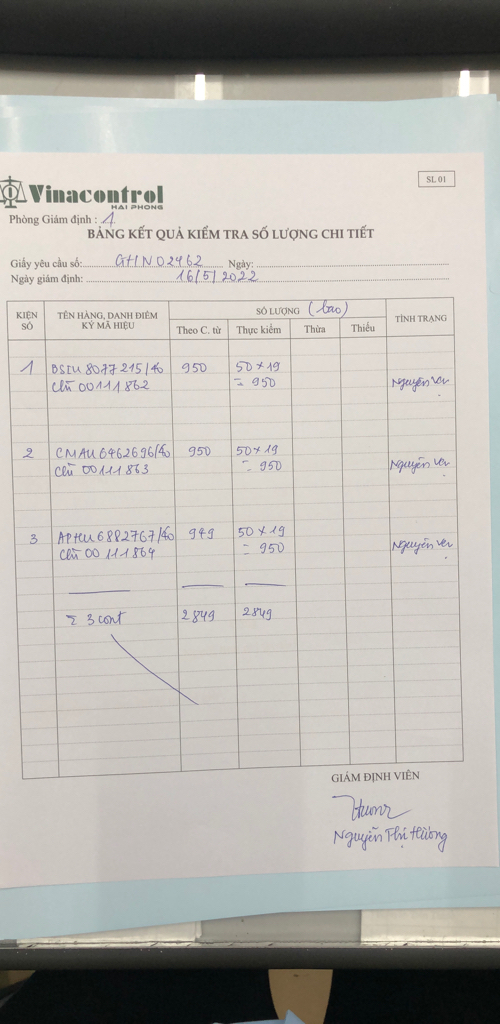 Vinacontrol
HẢI PHÒNG
SL 01
Phòng Giám định : 1
BẢNG KẾT QUẢ KIỂM TRA SỐ LƯỢNG CHI TIẾT
Giấy yêu cầu số: GHN02962 Ngày:
Ngày giám định: 16/5/2022
KIỆN SỐ
TÊN HÀNG, DANH ĐIỂM KÝ MÃ HIỆU
SỐ LƯỢNG (bao)
TÌNH TRẠNG
Theo C. từ Thực kiểm Thừa Thiếu
1 BSIU 8077215/40 950 50×19
Chì 00111862 = 950 Nguyên vẹn
2 CMAU 6462696/40 950 50×19
Chì 00111863 = 950 Nguyên vẹn
3 APHU 6882767/40 949 50×19
Chì 00111864 = 950 Nguyên vẹn
Σ 3 cont 2849 2849
GIÁM ĐỊNH VIÊN
Nguyễn Thị Hường